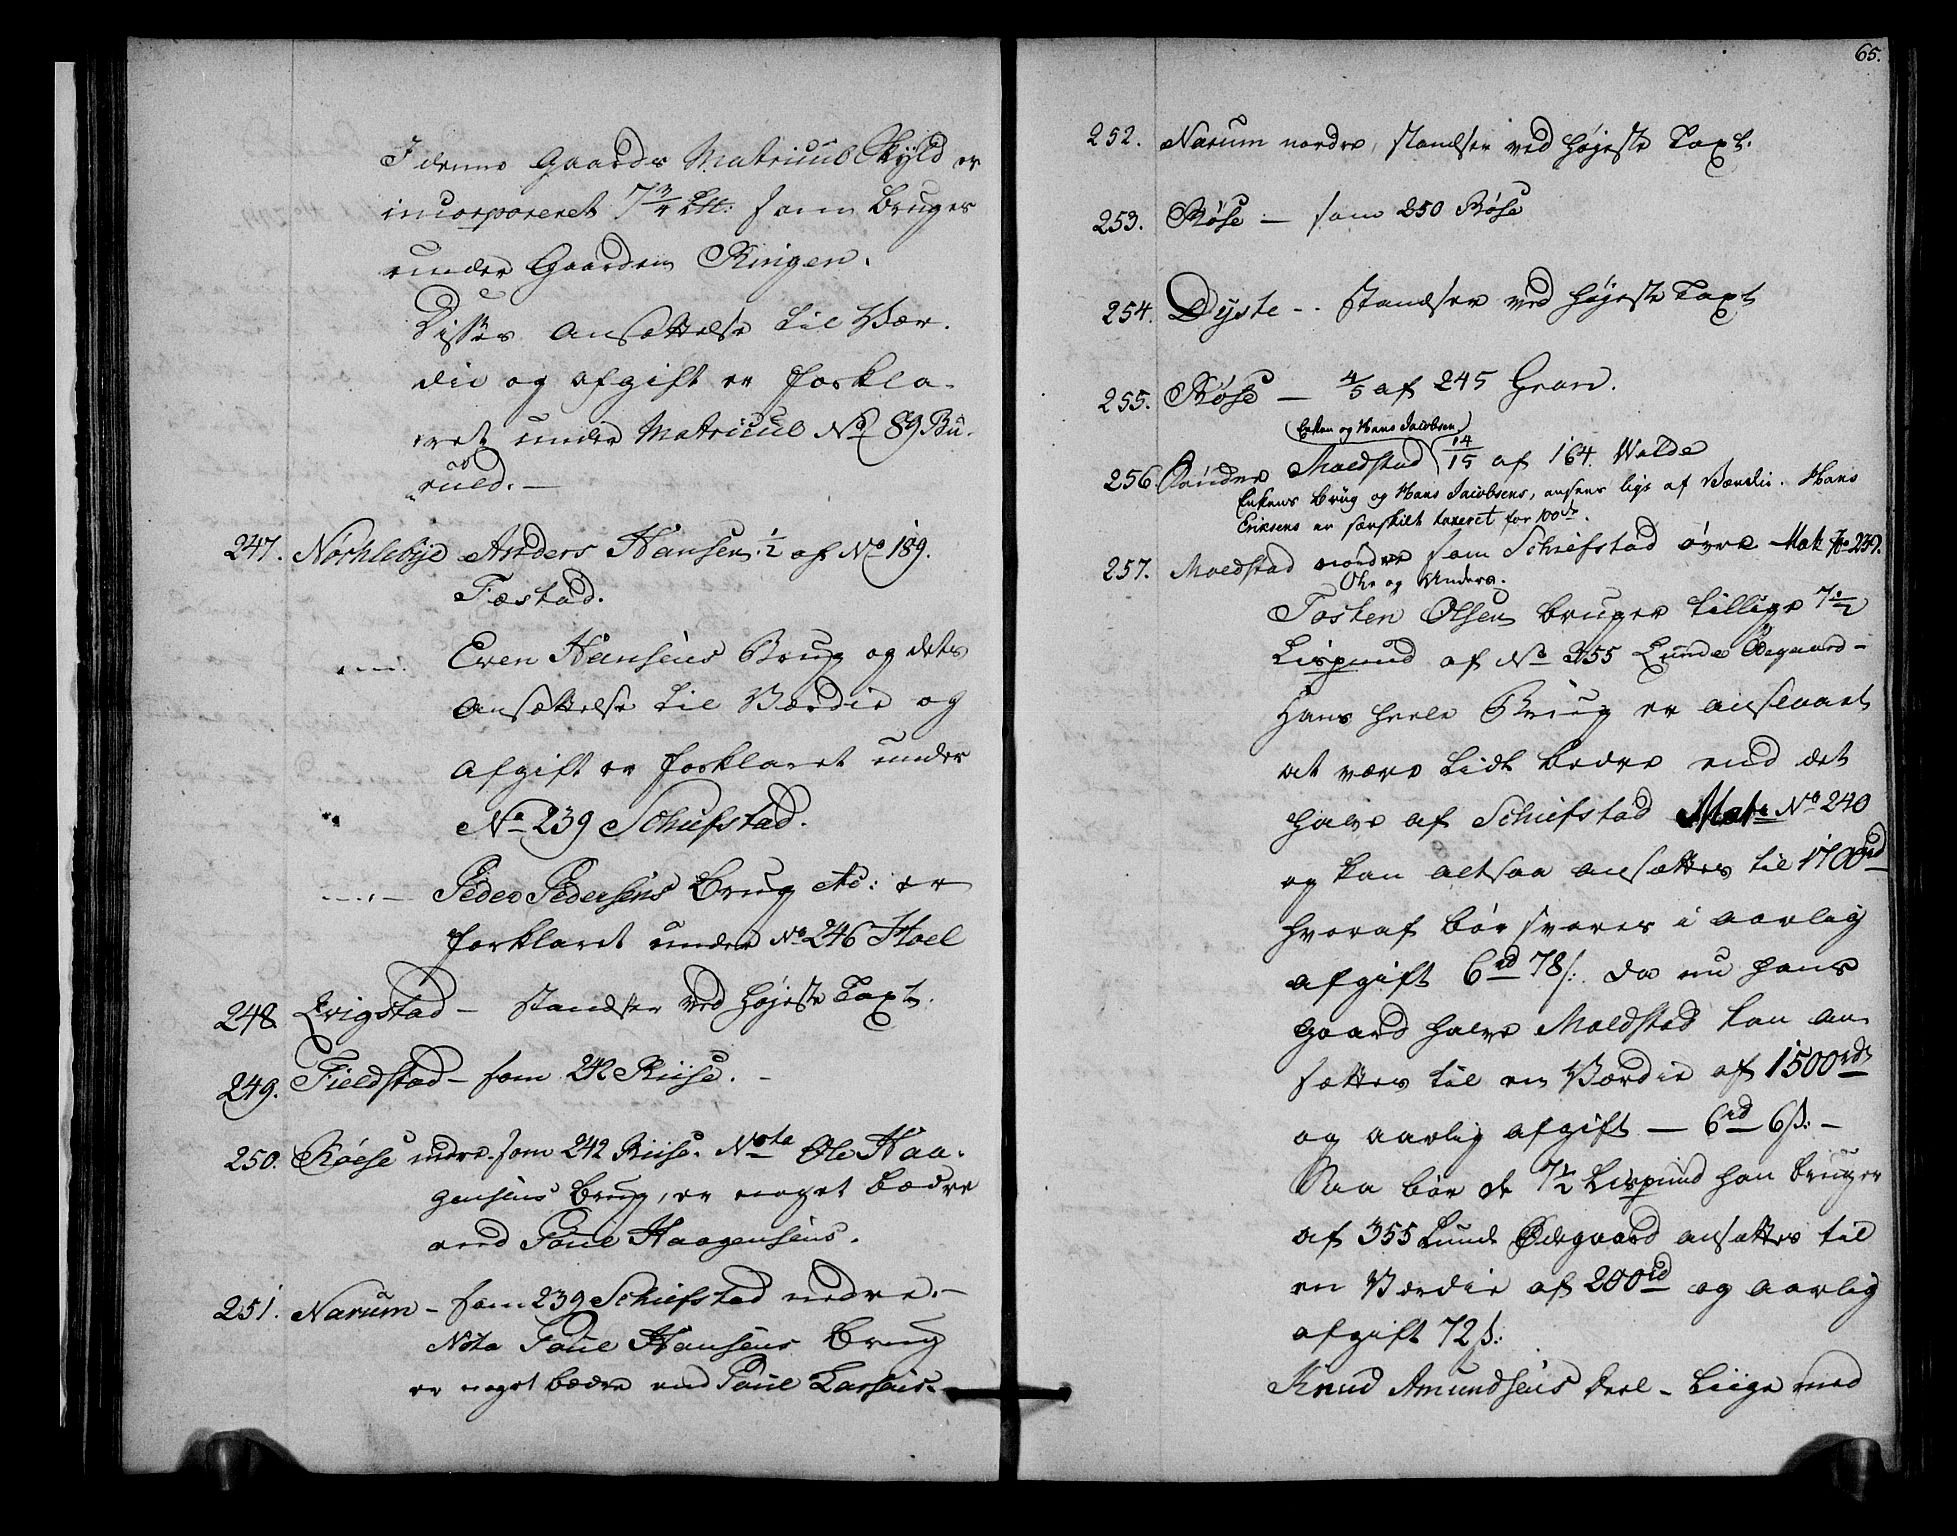 I denne Gaards Matricul Skyld er
incorporeret 7 3/4 L℔: som bruges
under Gaarden Ringen.
Disses Ansættelse til Vær-
die og afgift er forkla-
ret under Matricul No 89 Bu-
ruld. —
247. Northlebye Anders Hansen 1/2 af No 189.
Fæstad.
Even Hansens Brug og dets
Ansættelse til Værdie og
Afgift er forklaret under
No 239 Schiefstad.
Peder Pedersens Brug etc: er
forklaret under No 246 Hoel
248. Evigstad — standser ved højeste Taxt.
249. Fieldstad — som 242 Riise. —
250. Røese nedre som 242 Riise. Nota Ole Haa-
gensens Brug, er noget bædre
end Poul Haagensens.
251. Narum — som 239 Schiefstad nedre. —
Nota Poul Hansens Brug
er noget bædre end Poul Larsens.
65.
252. Narum nordre, standser ved højeste Taxt.
253. Røse — som 250 Røse
254. Dyste -- standser ved højeste Taxt
255. Røse — 4/5 af 245 Gran.
(Enken og Hans Jacobsen)
256 Søndre Moldstad 14/15 af 164. Wolde
Enkens Brug og Hans Jacobsens, ansees lige af Værdie. Hans
Eriksens er særskilt taxeret for 100 rd.
257. Moldstad nordre som Schiefstad øvre Matr No 239.
Ole og Anders.
Tosten Olsen bruger tillige 7 1/2
Lispund af No 355 Lunde Ødegaard —
Hans heele Brug er anseet
at være lidt bedre end det
halve af Schiefstad Matr No 240
og kan altsaa ansættes til 1700 rd
hvoraf bør svares i aarlig
afgift 6 rd 78 ß. da nu hans
gaard halve Moldstad kan an-
sættes til en Værdie af 1500 rdr
og aarlig afgift — 6 rd 6 ß. —
Saa bør de 7 1/2 Lispund han bruger
af 355 Lunde Ødegaard ansættes til
en Værdie af 200 rd og aarlig
afgift 72 ß:
Knud Amundsens Deel — liige med